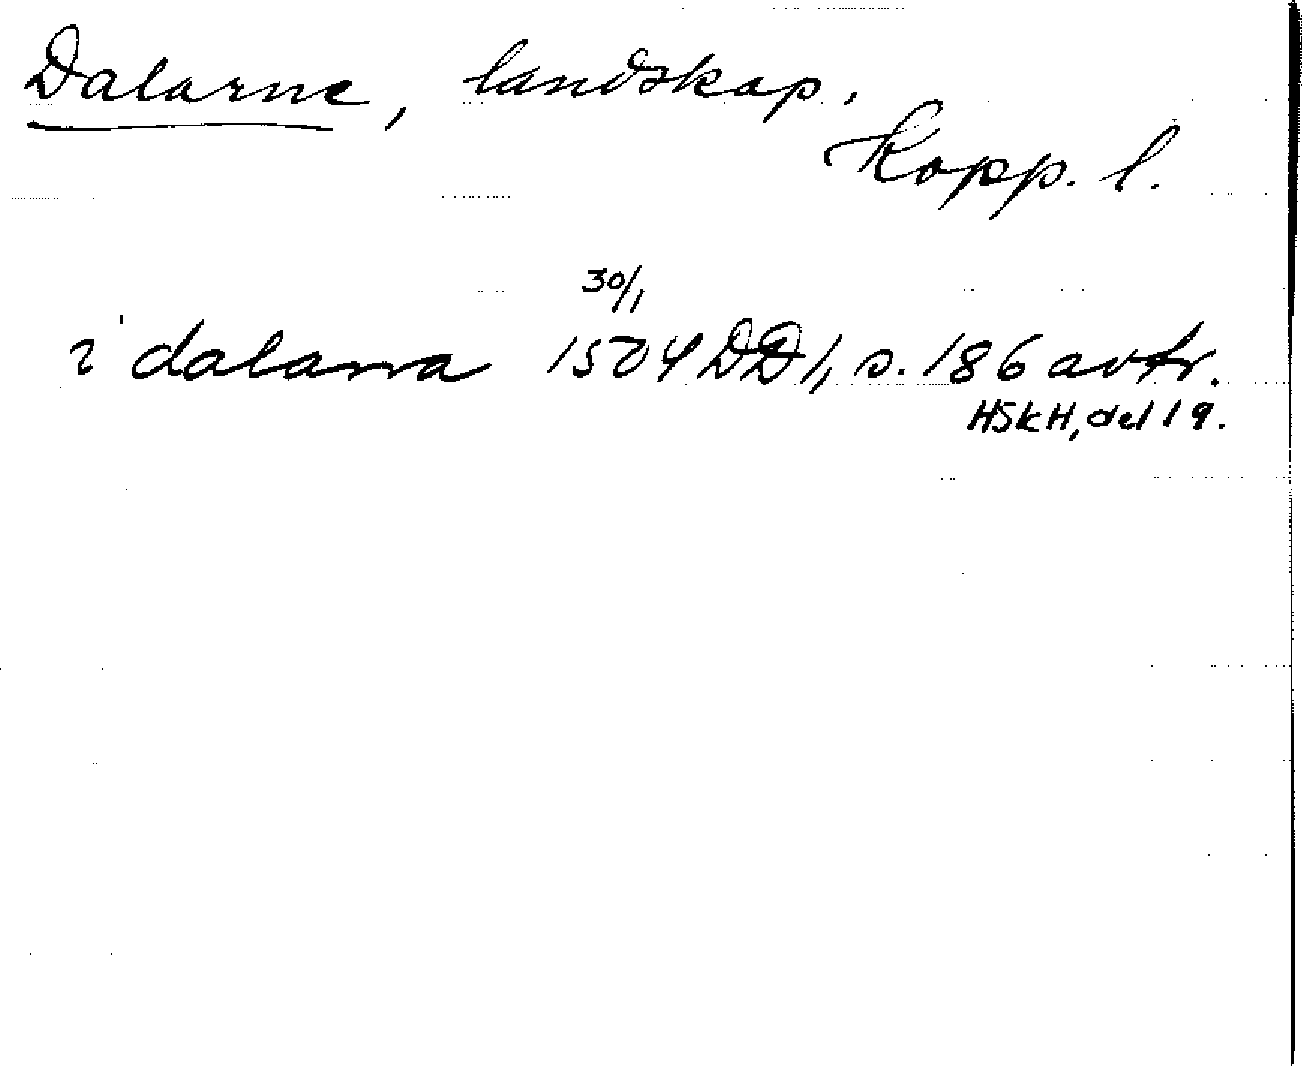 Dalarne, landskap.
Kopp. l.
30/1
i dalarna 1504 DD 1, s. 186 avtr.
HSkH, del 19.